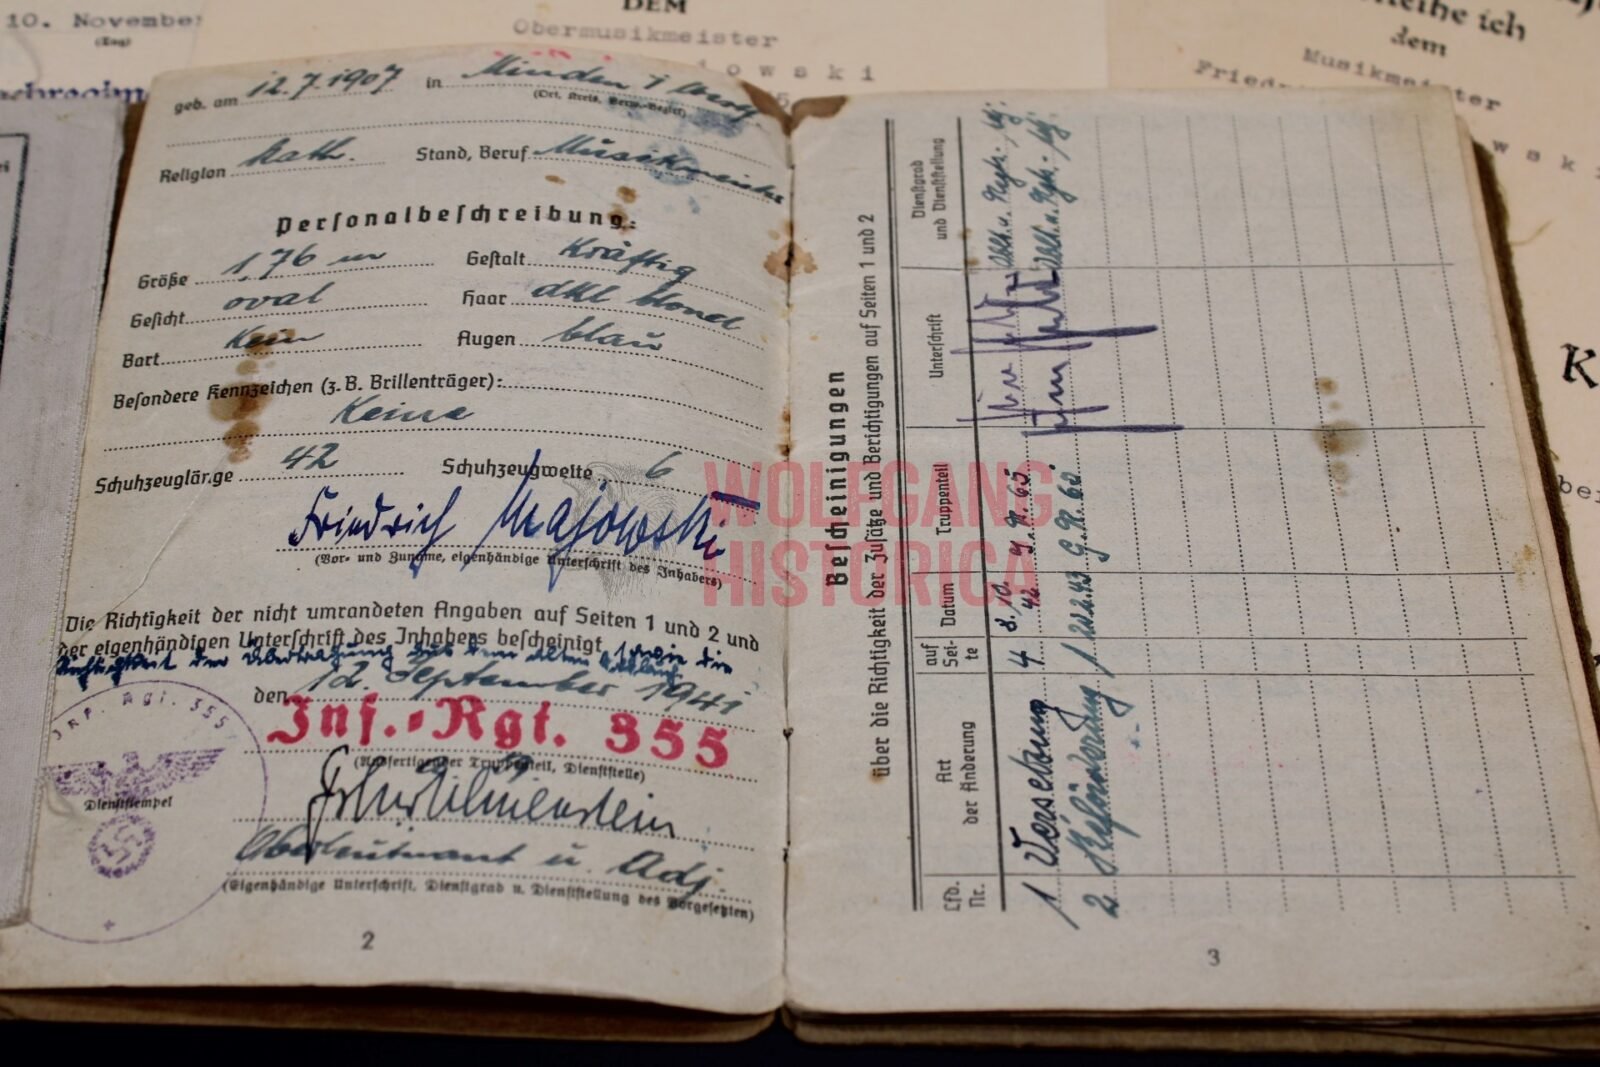 10. November
(Tag)
DEM
Obermusikmeister
owski
leihe ich
dem
Musikmeister
geb. am 12.7.1907 in Minden
(Ort, Kreis, Verw.-Bezirk)
Religion kath. Stand, Beruf Musikmeister
Personalbeschreibung:
Größe 1,76 m Gestalt Kräftig
Gesicht oval Haar dkl blond
Bart Kein Augen blau
Besondere Kennzeichen (z. B. Brillenträger):
Keine
Schuhzeuglänge 42 Schuhzeugweite 6
Friedrich Majowski
(Vor- und Zuname, eigenhändige Unterschrift des Inhabers)
Die Richtigkeit der nicht umrandeten Angaben auf Seiten 1 und 2 und
der eigenhändigen Unterschrift des Inhabers bescheinigt sowie die
Richtigkeit der Übertragung aus dem alten
den 12. September 1941
Inf.-Rgt. 355
(Ausfertigender Truppenteil, Dienststelle)
Oberleutnant u. Adj.
(Eigenhändige Unterschrift, Dienstgrad u. Dienststellung des Vorgesetzten)
INF. Rgt. 355
Dienststempel
2
Bescheinigungen
über die Richtigkeit der Zusätze und Berichtigungen auf Seiten 1 und 2
Lfd. Nr. Art der Änderung auf Seite Datum Truppenteil Unterschrift Dienstgrad und Dienststellung
1 Versetzung 4 8.10.42 G.R. 65
2 Beförderung 1 22.2.43 G.R. 62
3
WOLFGANG
HISTORICA